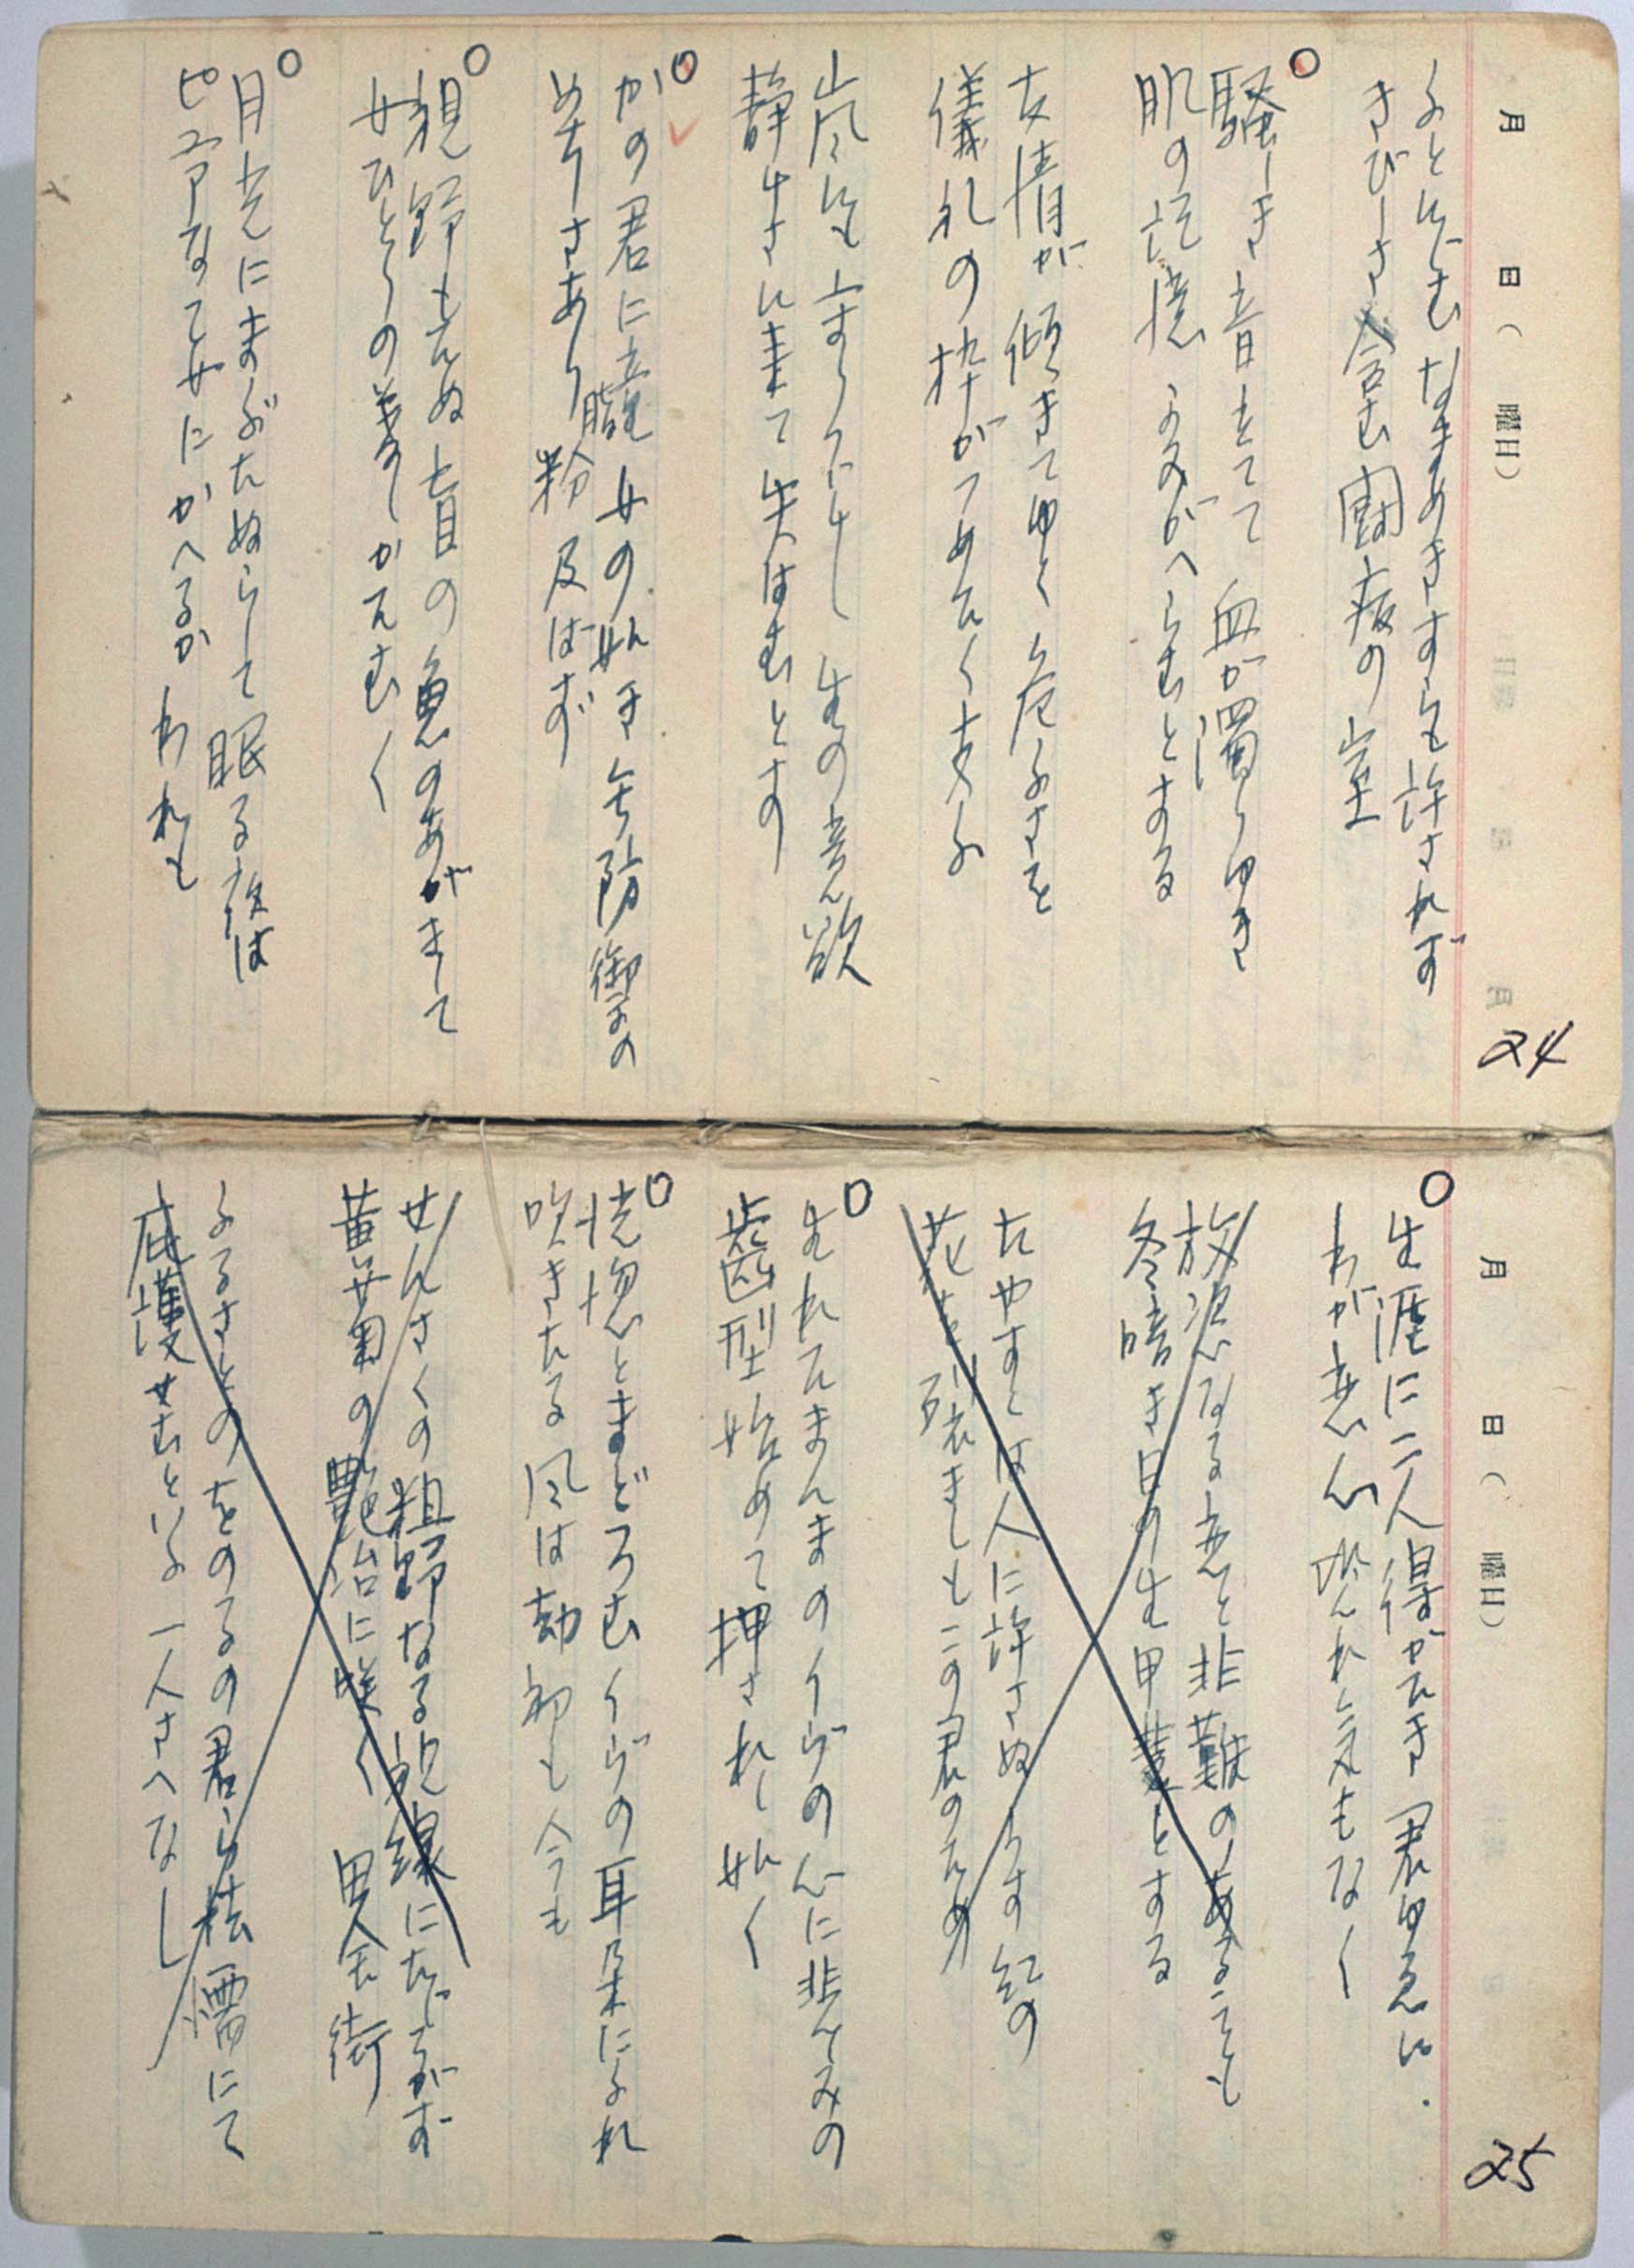 月 日( 曜日)
24
ふとにじむなまめきすらも許されず
さびしさ含む闘病の室
騒しき音たてて血が濁りゆき
肌の記憶よみがへらむとする
友情が傾きてゆく危ふさを
儀礼の枠がつめたく支ふ
嵐にも立まりにし生の意欲
静けさに来て失はむとす
かの君に童女の如き無防禦の
めしさあり脂粉及ばず
視野もたぬ盲の魚のあがきして
女ひとりの着しかたむく
月光にまぶたぬらして眠る夜は
ピュアなて女にかへるかわれも
月 日( 曜日)
25
生涯に二人得がたき君ゆゑに
わが恋心恐れ気もなく
放恣なる恋と非難のあることも
冬暗き日の生甲斐とする
たやすくは人に許さぬくちす紅の
花を散きしもこの君のため
生れたまんまのイヴの心に悲しみの
歯型始めて押されし如く
恍惚とまどろむイヴの耳朶にふれ
吹きたる風は劫初も今も
せんさくの粗野なる視線にたじろがず
黄菊の艶冶に咲く男童街
ふるさとのをのるの君ら怯懦にて
庇護せむといふ一人さへなし